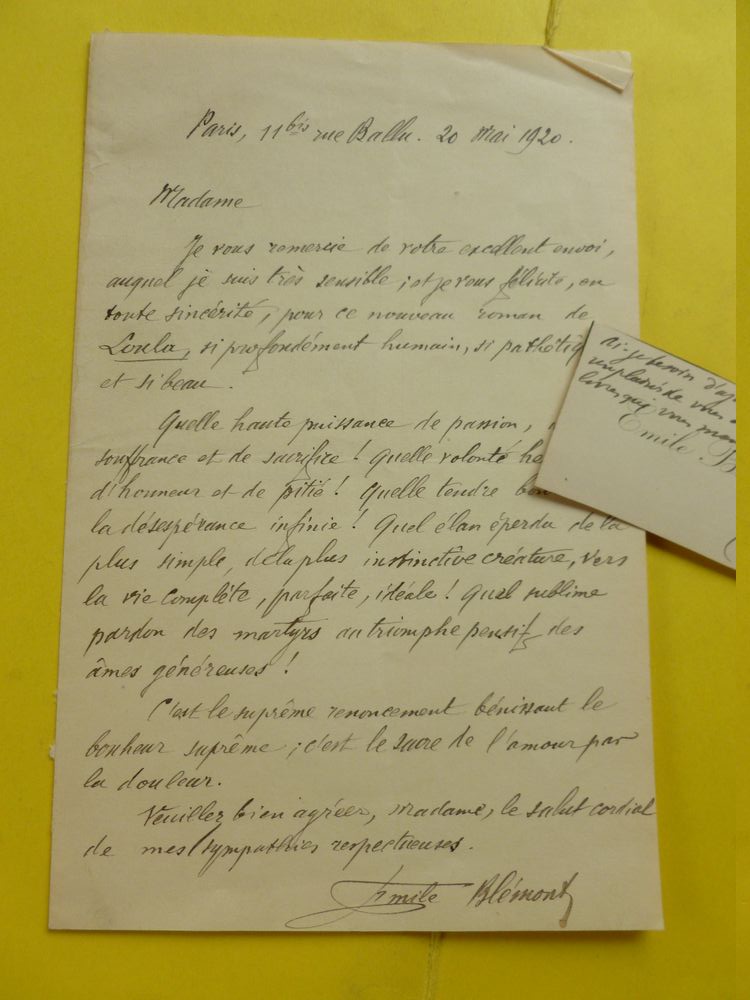 Paris, 11bis rue Ballu. 20 Mai 1920.
Madame
Je vous remercie de votre excellent envoi,
auquel je suis très sensible ; et je vous félicite, en
toute sincérité, pour ce nouveau roman de
Loula, si profondément humain, si pathétiq
et si beau.
Quelle haute puissance de passion,
souffrance et de sacrifice ! Quelle volonté
d'honneur et de pitié ! Quelle tendre
la désespérance infinie ! Quel élan éperdu de la
plus simple, de la plus instinctive créature, vers
la vie complète, parfaite, idéale ! Quel sublime
pardon des martyrs au triomphe pensif des
âmes généreuses !
C'est le suprême renoncement bénissant le
bonheur suprême ; c'est le sacre de l'amour par
la douleur.
Veuillez bien agréer, Madame, le salut cordial
de mes sympathies respectueuses.
Emile Blémont
ai-je besoin d'aj
un plaisir de vous
livres qui vous
Emile B